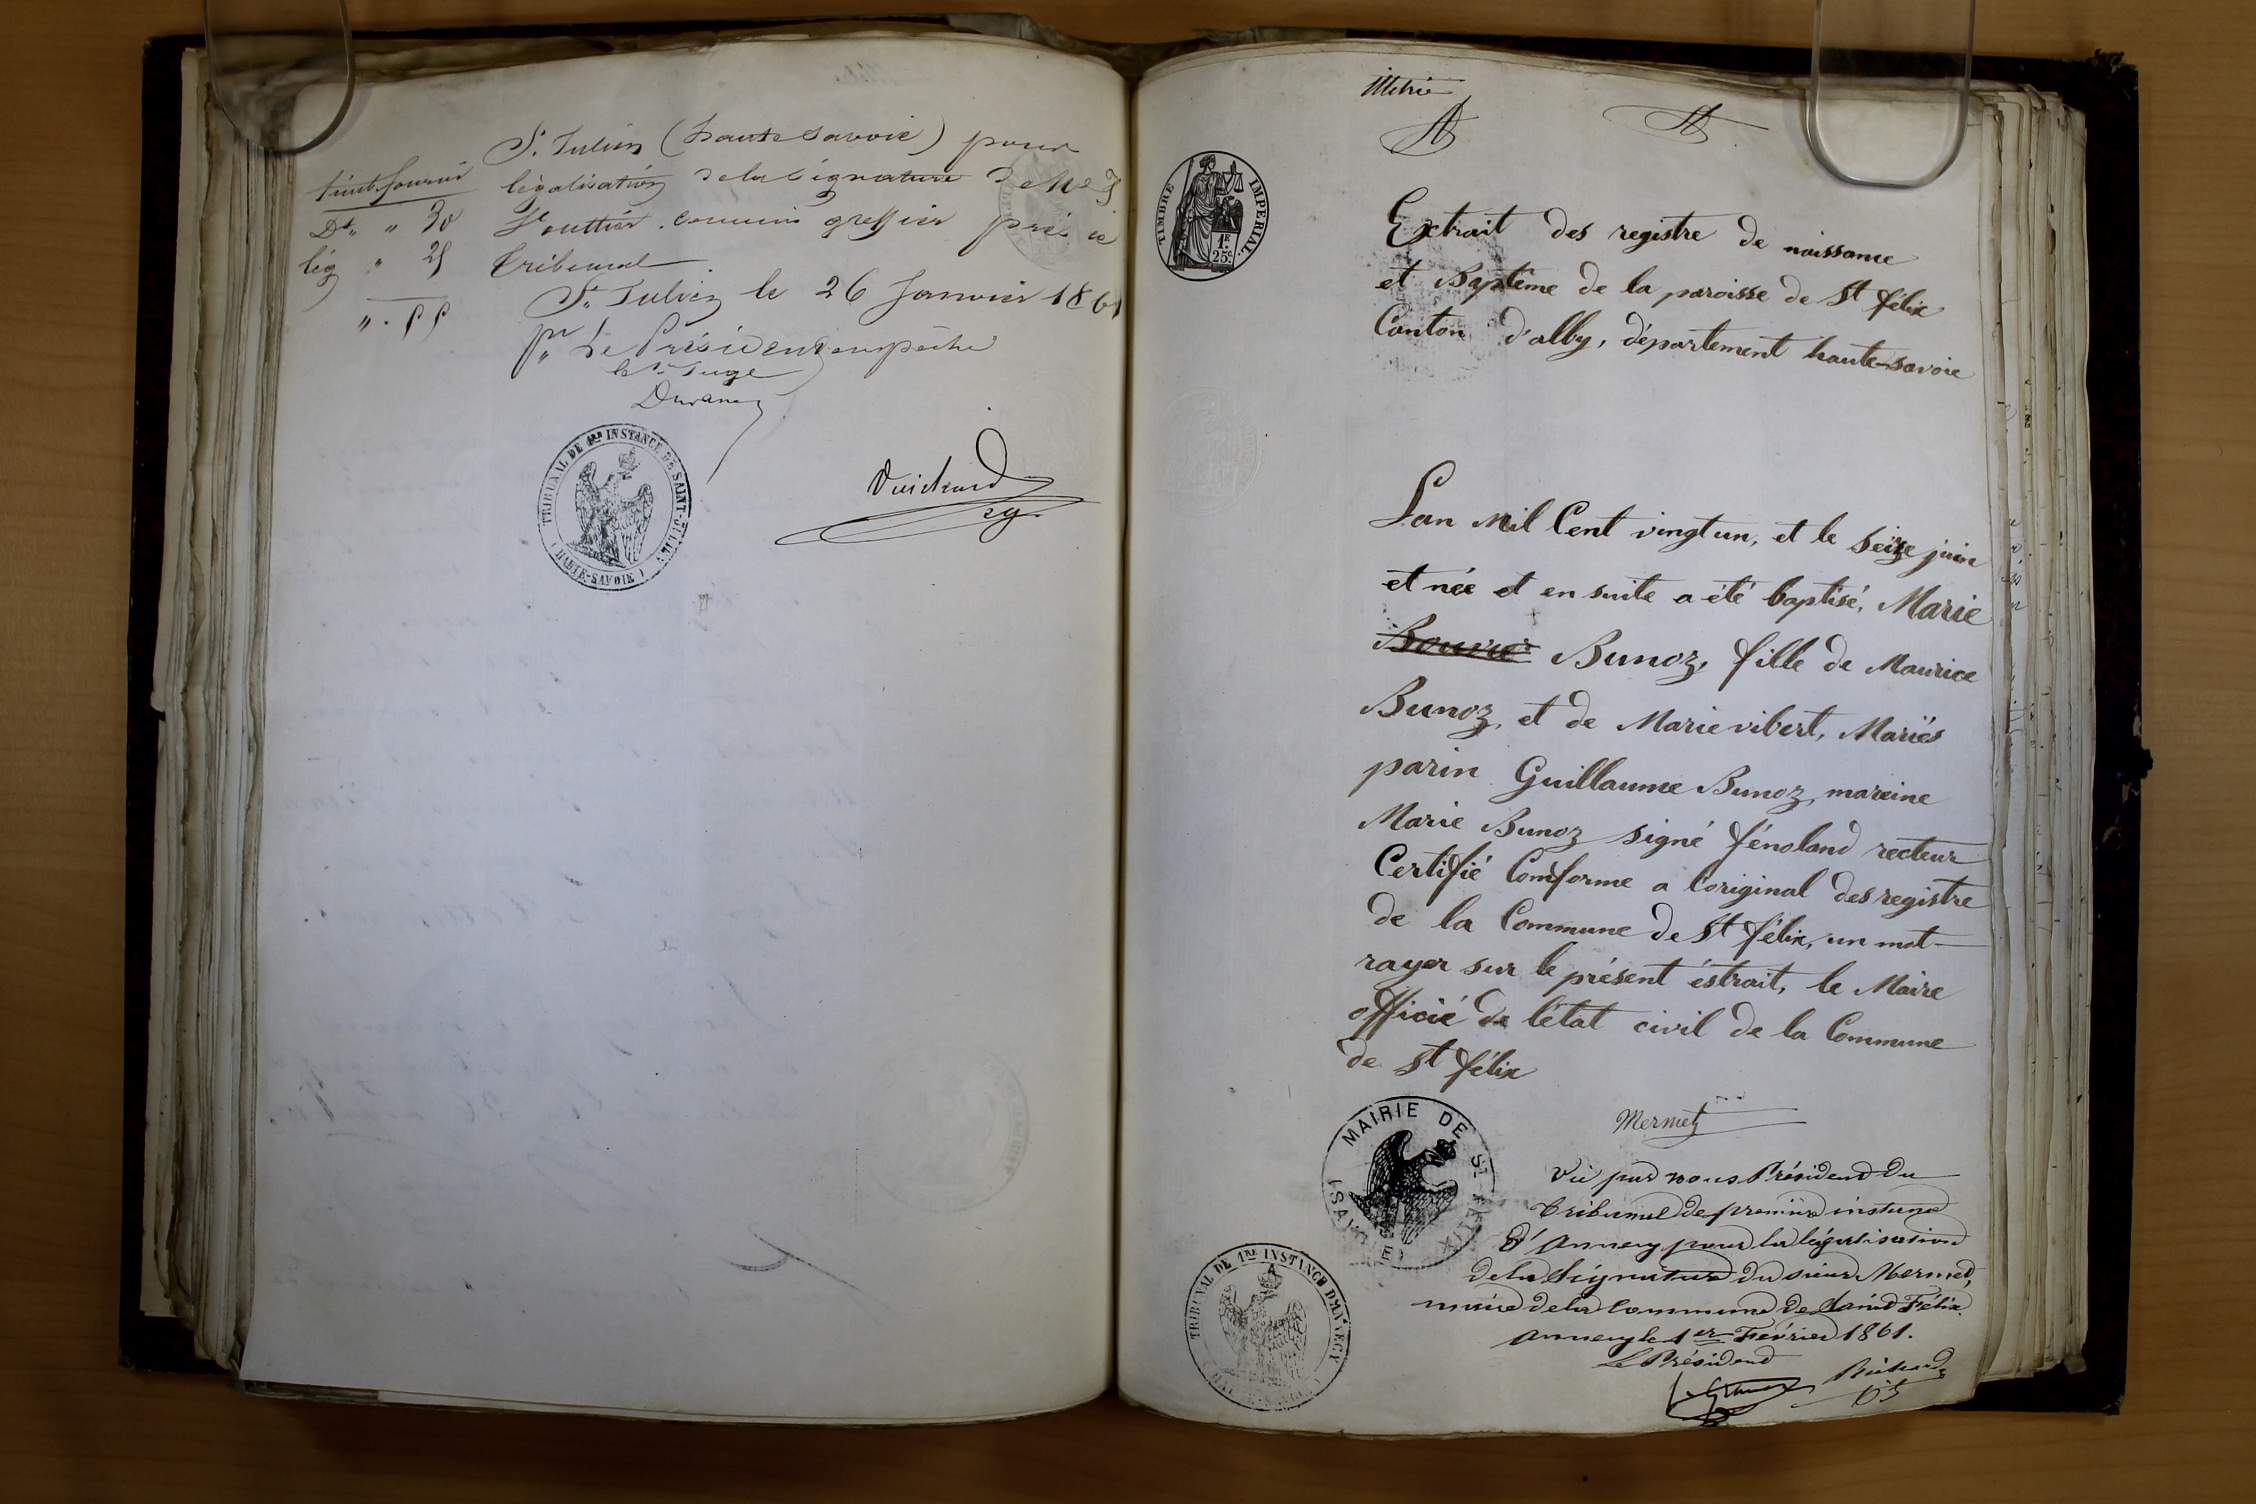 St Julien (haute Savoie) pour
légalisation de la signature de Me
commis greffier près ce
Tribunal
St Julien le 26 Janvier 1861
pr Le Président empêché
le Juge
timb. fourni
Dt " 30
lég " 25
" . 55
TRIBUNAL DE 1RE INSTANCE DE SAINT-JULIEN
(HAUTE-SAVOIE)
TIMBRE IMPERIAL
1F.
25c.
Extrait des registre de naissance
et Baptême de la paroisse de St félix
Canton d'alby, département haute-savoie
L'an Mil Cent vingt un, et le seize juin
et née et en suite a été baptisé, Marie
Bouvier Bunoz, fille de Maurice
Bunoz, et de Marie vibert, Mariés
parin Guillaume Bunoz, mareine
Marie Bunoz signé fénoland recteur
Certifié Comforme a l'original des registre
de la Commune de St félix, un mot
rayer sur le présent éstrait, le Maire
officié de l'état civil de la Commune
de St félix
MAIRIE DE ST FÉLIX
(SAVOIE)
Mermet
Vu par nous Président du
Tribunal de première instance
d'Annecy pour la légalisation
de la Signature du sieur Mermet,
maire de la Commune de Saint Félix.
Annecy le 1er Février 1861.
Le Président
TRIBUNAL DE 1RE INSTANCE D'ANNECY